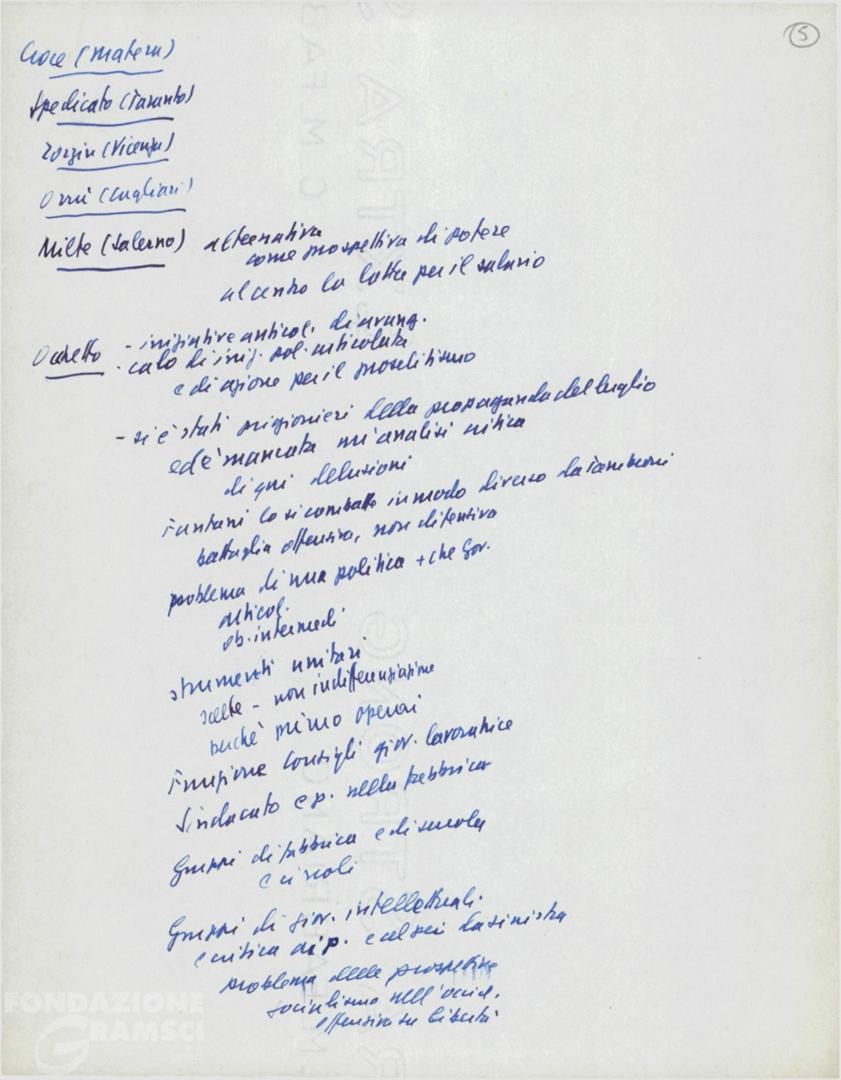 5
Croce (Matera)
Spedicato (Taranto)
Zorzin (Vicenza)
Orrù (Cagliari)
Milte (Salerno) alternativa
come prospettiva di potere
al centro la lotta per il salario
Occhetto - iniziative anticol. di avang.
- calo di iniz. pol. articolata
e di azione per il proselitismo
- si è stati prigionieri della propaganda del luglio
ed è mancata un'analisi critica
di qui delusioni
Fanfani lo si combatte in modo diverso da Tambroni
battaglia offensiva, non difensiva
problema di una politica + che Gov.
articol.
ob. intermedi
strumenti unitari
scelte - non indifferenziazione
perché primo operai
Funzione Consigli giov. lavoratrice
Sindacato e p. nella fabbrica
Gruppi di fabbrica e di scuola
e circoli
Gruppi di giov. intellettuali.
critica al p. e al psi da sinistra
problema delle prospettive
socialismo nell'occid.
offensiva su libertà
FONDAZIONE
GRAMSCI